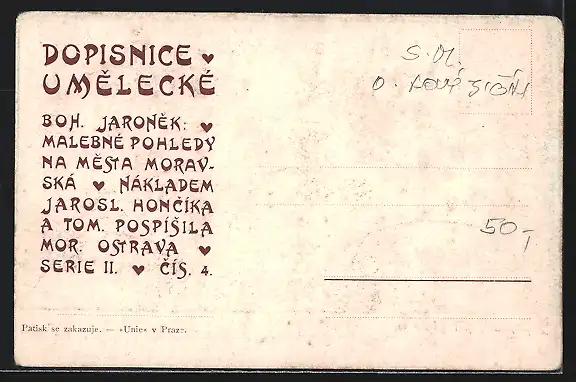 DOPISNICE ♥
UMĚLECKÉ
BOH. JARONĚK: ♥
MALEBNÉ POHLEDY
NA MĚSTA MORAV-
SKÁ ♥ NÁKLADEM
JAROSL. HONČÍKA
A TOM. POSPÍŠILA
MOR. OSTRAVA ♥
SERIE II. ♥ ČÍS. 4.
Patisk se zakazuje. — »Unie« v Praze.
50,-